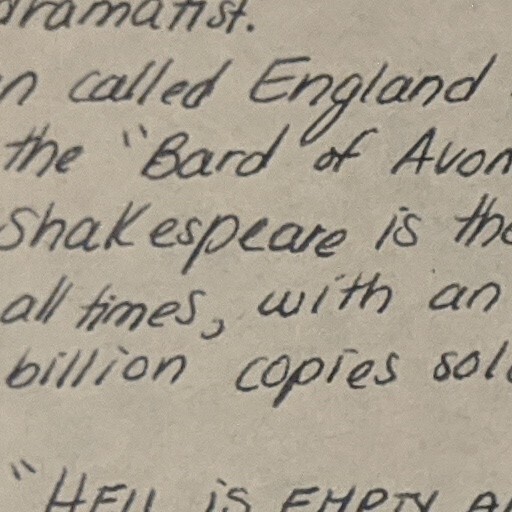 dramatist.
called England
the "Bard of Avon
Shakespeare is the
all times, with an
billion copies sol
"HELL IS EMPTY A